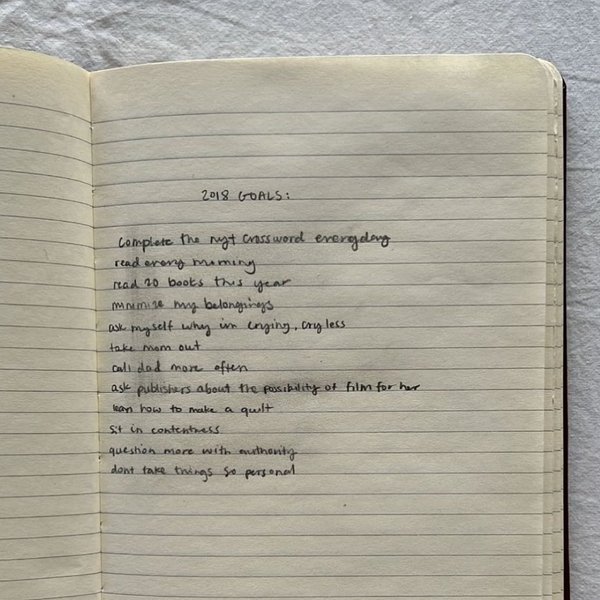 2018 GOALS:
complete the nyt crossword everyday
read every morning
read 20 books this year
minimize my belongings
ask myself why im crying, cry less
take mom out
call dad more often
ask publishers about the possibility of film for her
learn how to make a quilt
sit in contentness
question more with authority
dont take things so personal